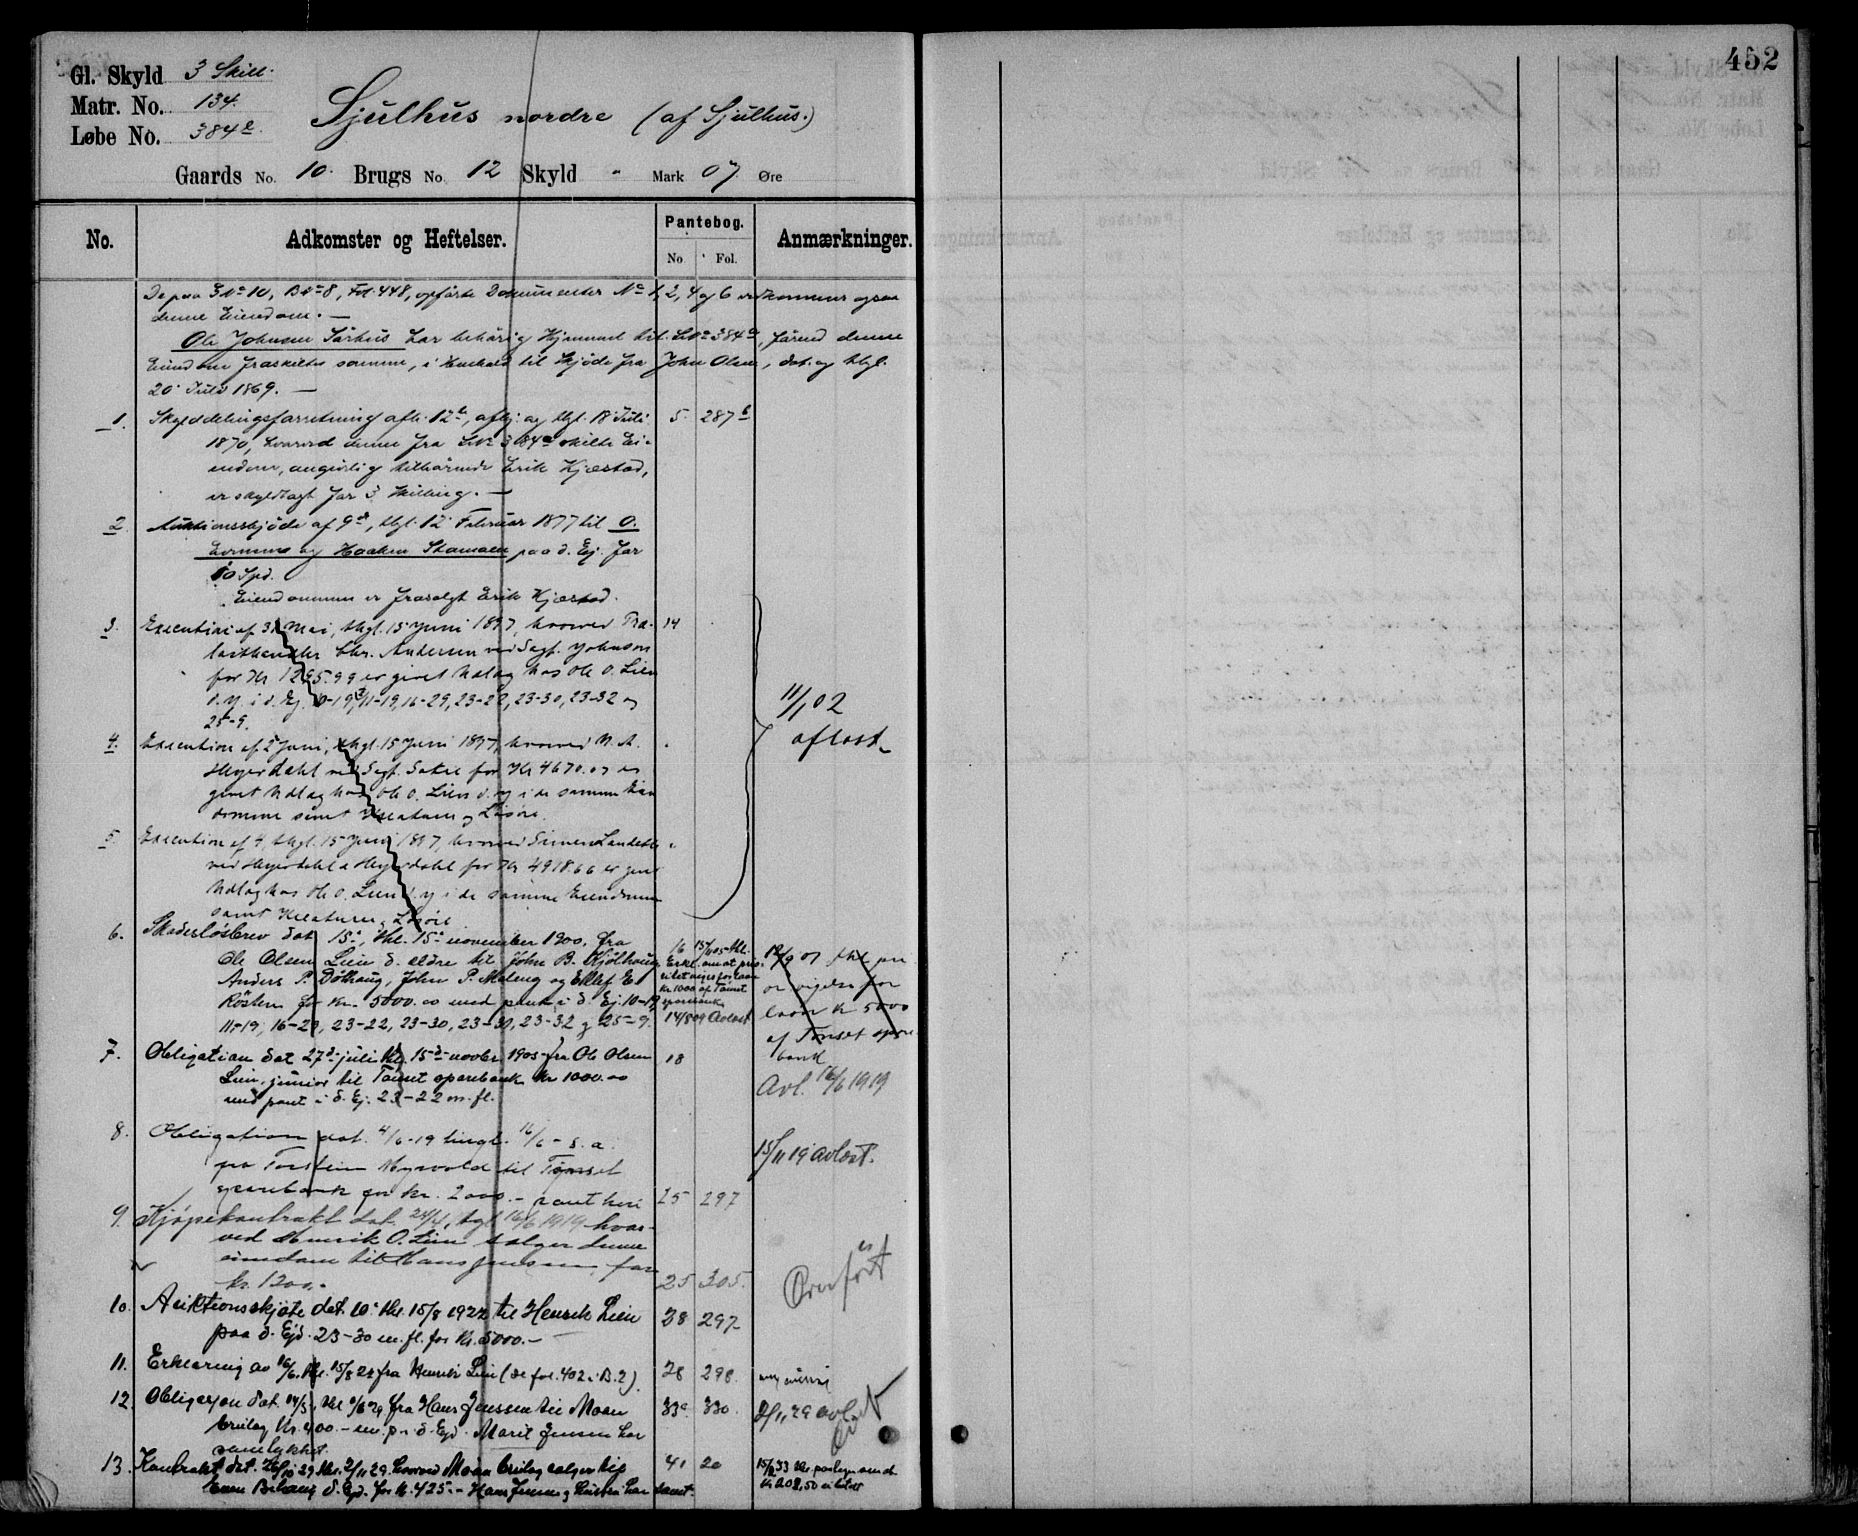 452
Gl. Skyld 3 Skill.
Matr. No. 134.
Løbe No. 384e.
Sjulhus nordre (af Sjulhus.)
Gaards No. 10. Brugs No. 12 Skyld - Mark 07 Øre
No. Adkomster og Heftelser. Pantebog. Anmærkninger.
No. Fol.
De paa GNo 10, BNo 8, Fol. 448, opførte Dokumenter No 1, 2, 4 og 6 vedkommer ogsaa
denne Eiendom. —
Ole Johnsen Sørhus har behørig Hjemmel til LNo 384a, førend denne
Eiendom fraskiltes samme, i Henhold til Skjøde fra John Olsen, dat. og thgl.
20 Juli 1869. —
1. Skylddelingsforretning afh. 12te, afhj. og thgl. 18 Juli 5. 287b
1870, hvorved denne fra LNo 384a skilte Ei-
endom, angivelig tilhørende Erik Kjæstad,
er skyldlagt for 3 Skilling. —
2. Auktionsskjøde af 9de, thgl. 12 Februar 1877 til O.
og Haaken Stamoen paa d. Ej. for
10 Spd.
Eiendommen er frasolgt Erik Kjæstad.
3. Execution af 31 Mai, thgl. 15 Juni 1897, hvorved Tra- 14
lasthandler Chr. Andersen ved Sagf. Johnson
for Kr 1295.99 er givet Udlæg hos Ole O. Lien
d. y. i d. Ej. 10-19, 11-19, 16-29, 23-22, 23-30, 23-32 og
25-9.
11/1 02
aflæst
4. Execution af 2 Juni, thgl. 15 Juni 1897, hvorved N. A.
Heyerdahl ved Sagf. for Kr 4670.00 er
givet Udlæg hos Ole O. Lien d. y. i de samme Eien
domme samt Kreaturer og Løsøre.
5. Execution af 4, thgl. 15 Juni 1897, hvorved
ved Heyerdahl & Heyerdahl for Kr 4918.66 er givet
Udlæg hos Ole O. Lien d. y. i de samme Eiendomme
samt Kreaturer, Løsøre
6. Skadesløsbrev dat 15de, thl. 15de november 1900, fra 16
Ole Olsen Lien d. eldre til John B. Kjølhaug,
Anders P. Døthaug, John P. Moleng og Ellef E.
Røsten for kr. 5000.00 med pant i d. Ej. 10-19
11-19, 16-29, 23-22, 23-30, 23-31, 23-32 og 25-9.
15/11 05 thl.
Erkl. om at prio-
ritet viges for laan
kr 1000 af Tønset
sparebank
14/8 09 Avlæst
vigelse for
laan kr 5000
af Tønset spare
bank
7. Obligation dat 27de juli thl 15de novbr 1905 fra Ole Olsen 18
Lien, junior til Tønset sparebank kr 1000.00
med pant i d. Ej. 23-22 m. fl.
Avl. 16/6 1919
8. Obligation dat. 4/6-19 tingl. 16/6 - s. a.
fra Torstein Myrvold til Tønset
sparebank for kr. 2000.- pant heri 25 297
15/11 19 avlæst.
9. Kjøpekontrakt dat. 24/4, tgl 16/6 1919 hvor-
ved Henrik O. Lien selger denne
eiendom til Hans Jensen for
kr. 1200.- 25 305.
Overført
10. Auktionsskjøte dat. 10. thl. 15/8 1922 til Henrik Lien 28 297
paa d. Ejd. 23-30 m. fl. for kr. 5000.-
11. Erklæring av 16/6. thl. 15/8 22 fra Henrik Lien (se fol. 402 i B. 2). 28 298.
12. Obligasjon dat. 14/5, thl 1/6 29 fra Hans Jenssen til Moan 33a 330.
brulag kr. 400.- m. p. i d. Ejd. Marit Jensen har
samtykket.
2/11 29 avl.
13. Kontrakt dat. 26/10 29 thl. 2/11 29 hvorved Moan brulag selger til 41 20
Even d. Ejd. for kr. 425.- Hans Jensen og hustru har samt.
15/2 33 thl.
kr 208,50 er betalt